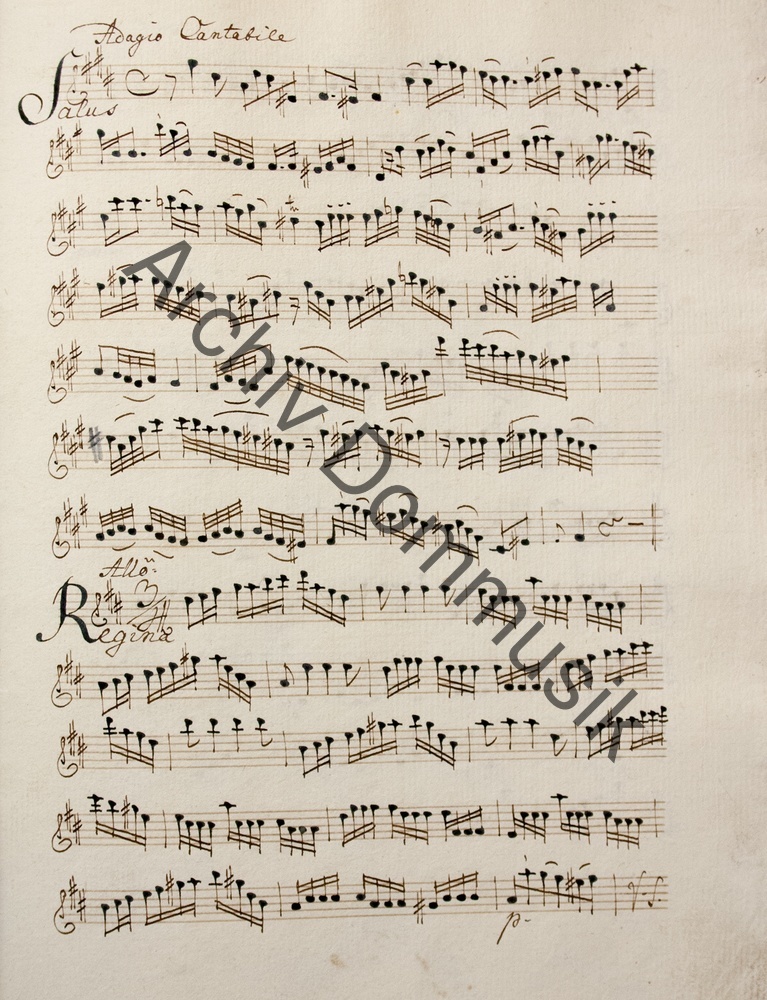 Adagio Cantabile
Salus
Allo:
Regina
p.
V. S.
Archiv Dommusik